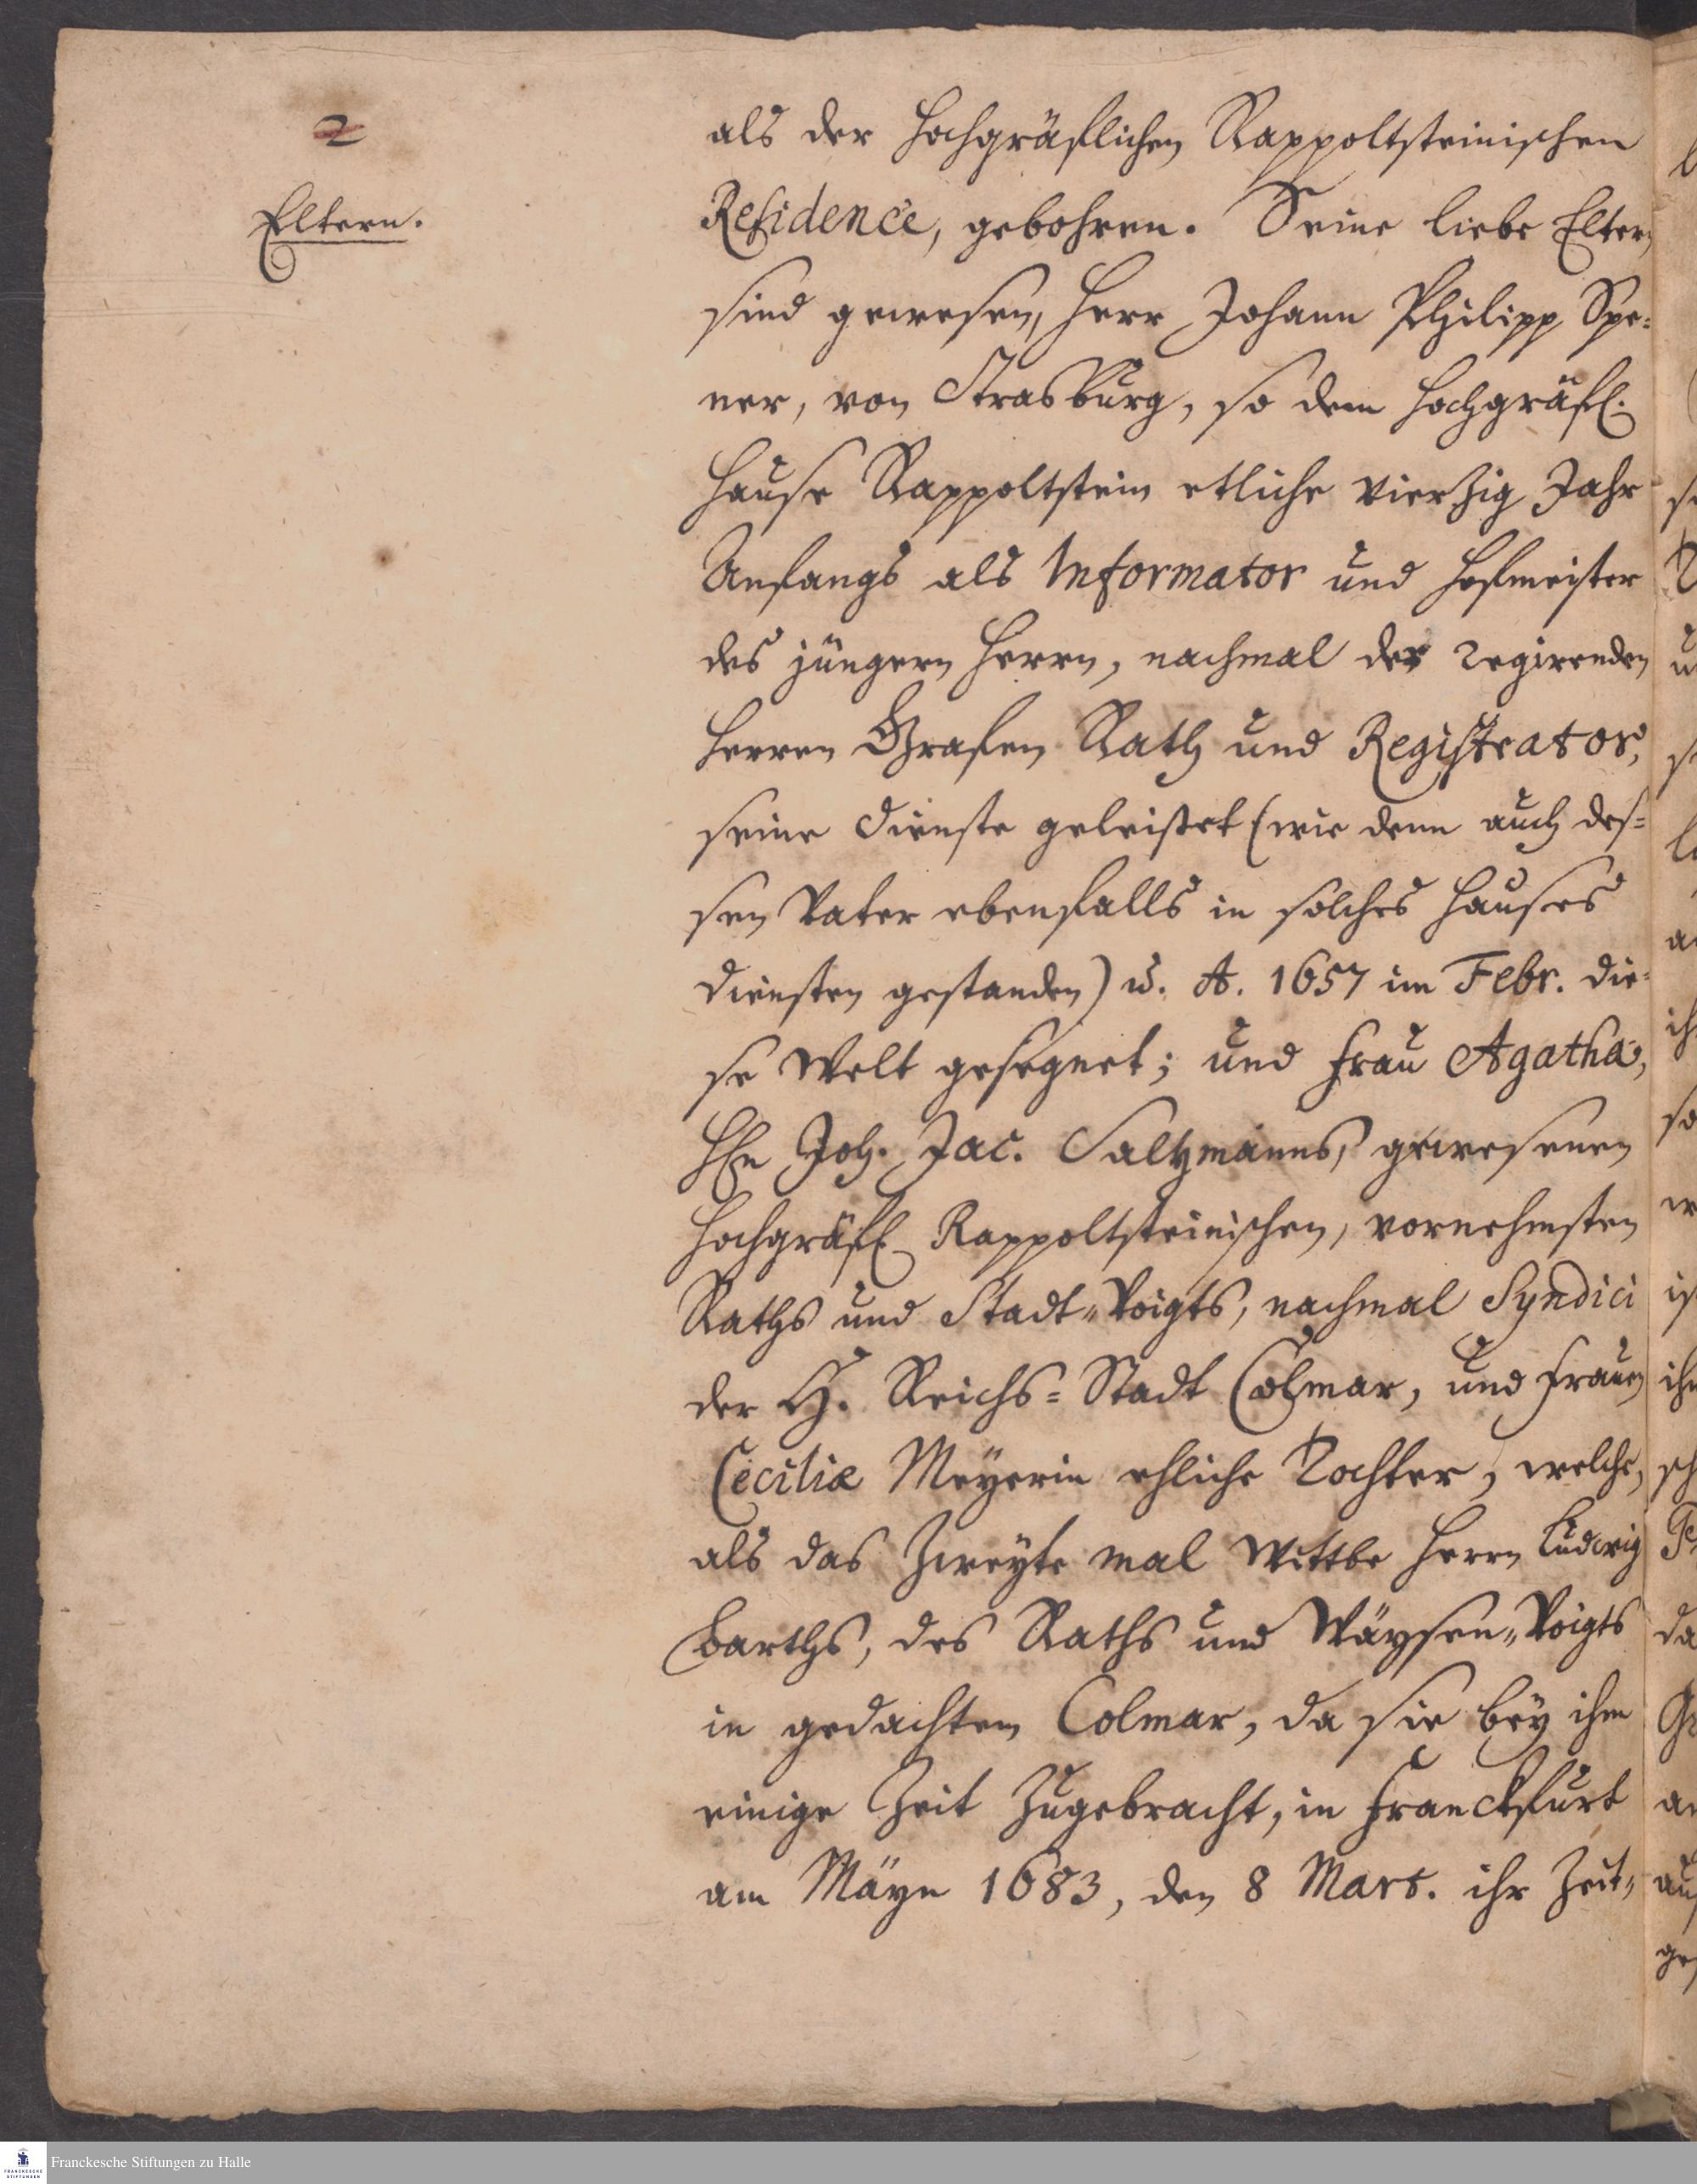 2
Eltern.
als der Hochgräflichen Rappoltsteinischen
Residence, gebohren. Seine liebe Eltern
sind gewesen, Herr Johann Philipp Spe=
ner, von Strasburg, so dem Hochgräfl.
Hause Rappoltstein etliche vierzig Jahr
Anfangs als Informator und Hofmeister
des jüngern Herrn, nachmal der regirenden
Herren Grafen Rath und Registrator,
seine Dienste geleistet (wie denn auch des=
sen Vater ebenfalls in solches Hauses
Diensten gestanden) u. A. 1657 im Febr. die=
se Welt gesegnet; und Frau Agatha,
Hn Joh. Jac. Saltzmanns, gewesenen
Hochgräfl Rappoltsteinischen, vornehmsten
Raths und Stadt=Voigts, nachmal Syndici
der H. Reichs=Stadt Colmar, und Frauen
Ceciliæ Meyerin ehliche Tochter, welche,
als das Zweyte mal Wittbe Herrn Ludwig
Barths, des Raths und Wäysen=Voigts
in gedachten Colmar, da sie bey ihm
einige Zeit Zugebracht, in Franckfurt
am Mäyn 1683, den 8 Mart. ihr Zeit=
Franckesche Stiftungen zu Halle
FRANCKESCHE
STIFTUNGEN